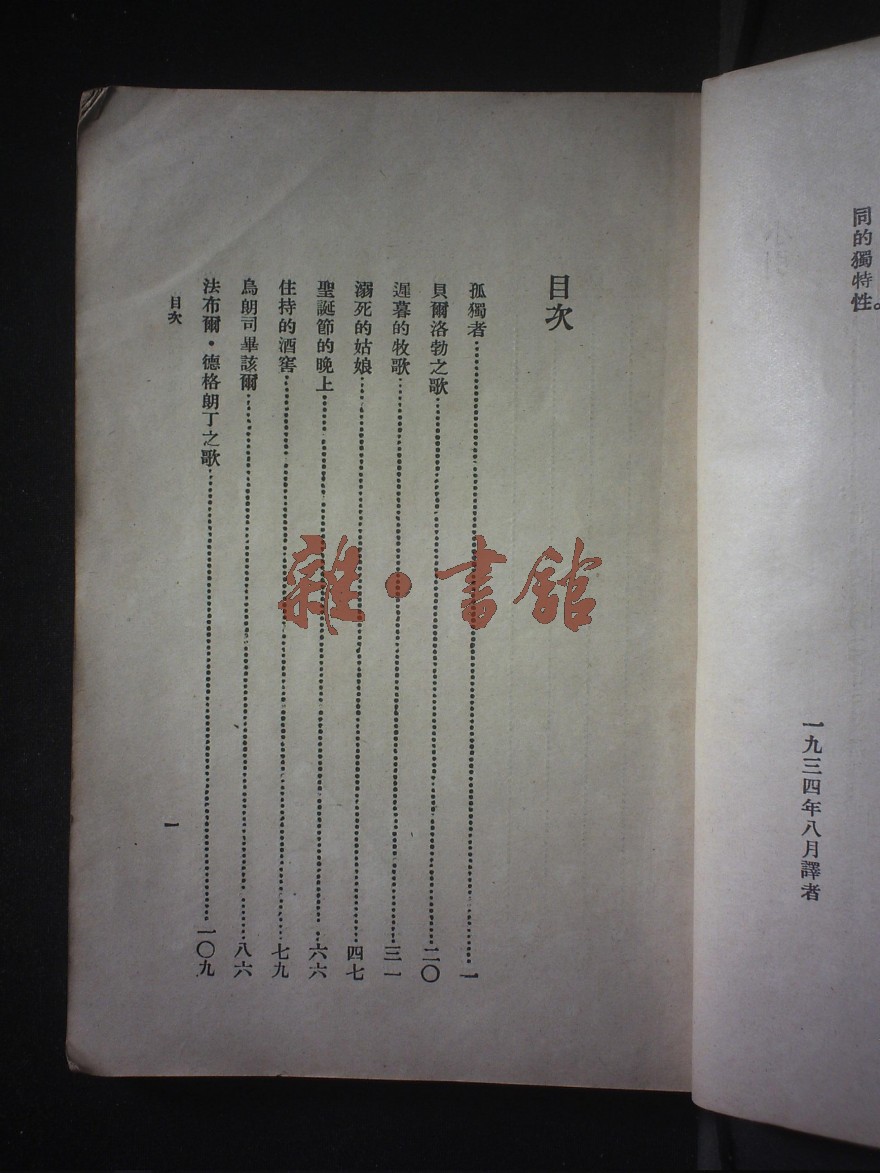 同的獨特性。
一九三四年八月譯者
目次
孤獨者 一
貝爾洛勃之歌 二〇
遲暮的牧歌 三一
溺死的姑娘 四七
聖誕節的晚上 六六
住持的酒窖 七九
烏朗司畢該爾 八六
法布爾·德格朗丁之歌 一〇九
目次
一
雜·書館